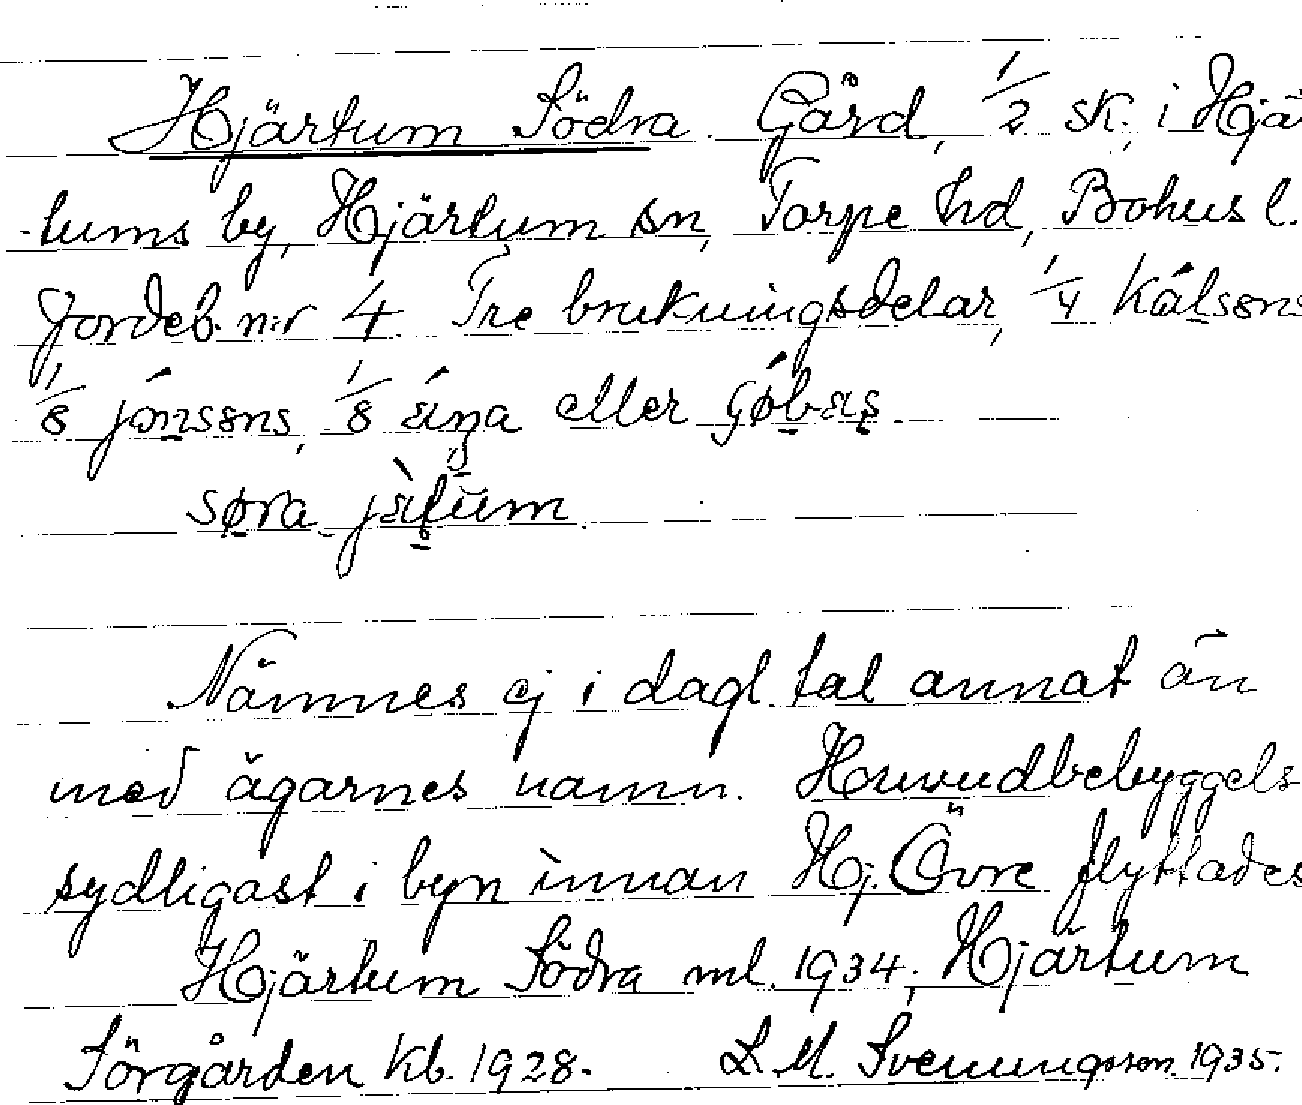 Hjärtum Södra. Gård, 1/2 sk. i Hjä
tums by, Hjärtum sn, Torpe hd, Bohus l.
Jordeb. n:r 4. Tre brukningsdelar, 1/4 Kålsøns
1/8 jónsøns, 1/8 eller
søra
Nämnes ej i dagl. tal annat än
med ägarnes namn. Huvudbebyggels
sydligast i byn innan Hj. Övre flyttades
Hjärtum Södra ml. 1934; Hjärtum
Sörgården Kb. 1928. L. M. Svenungsson 1935.